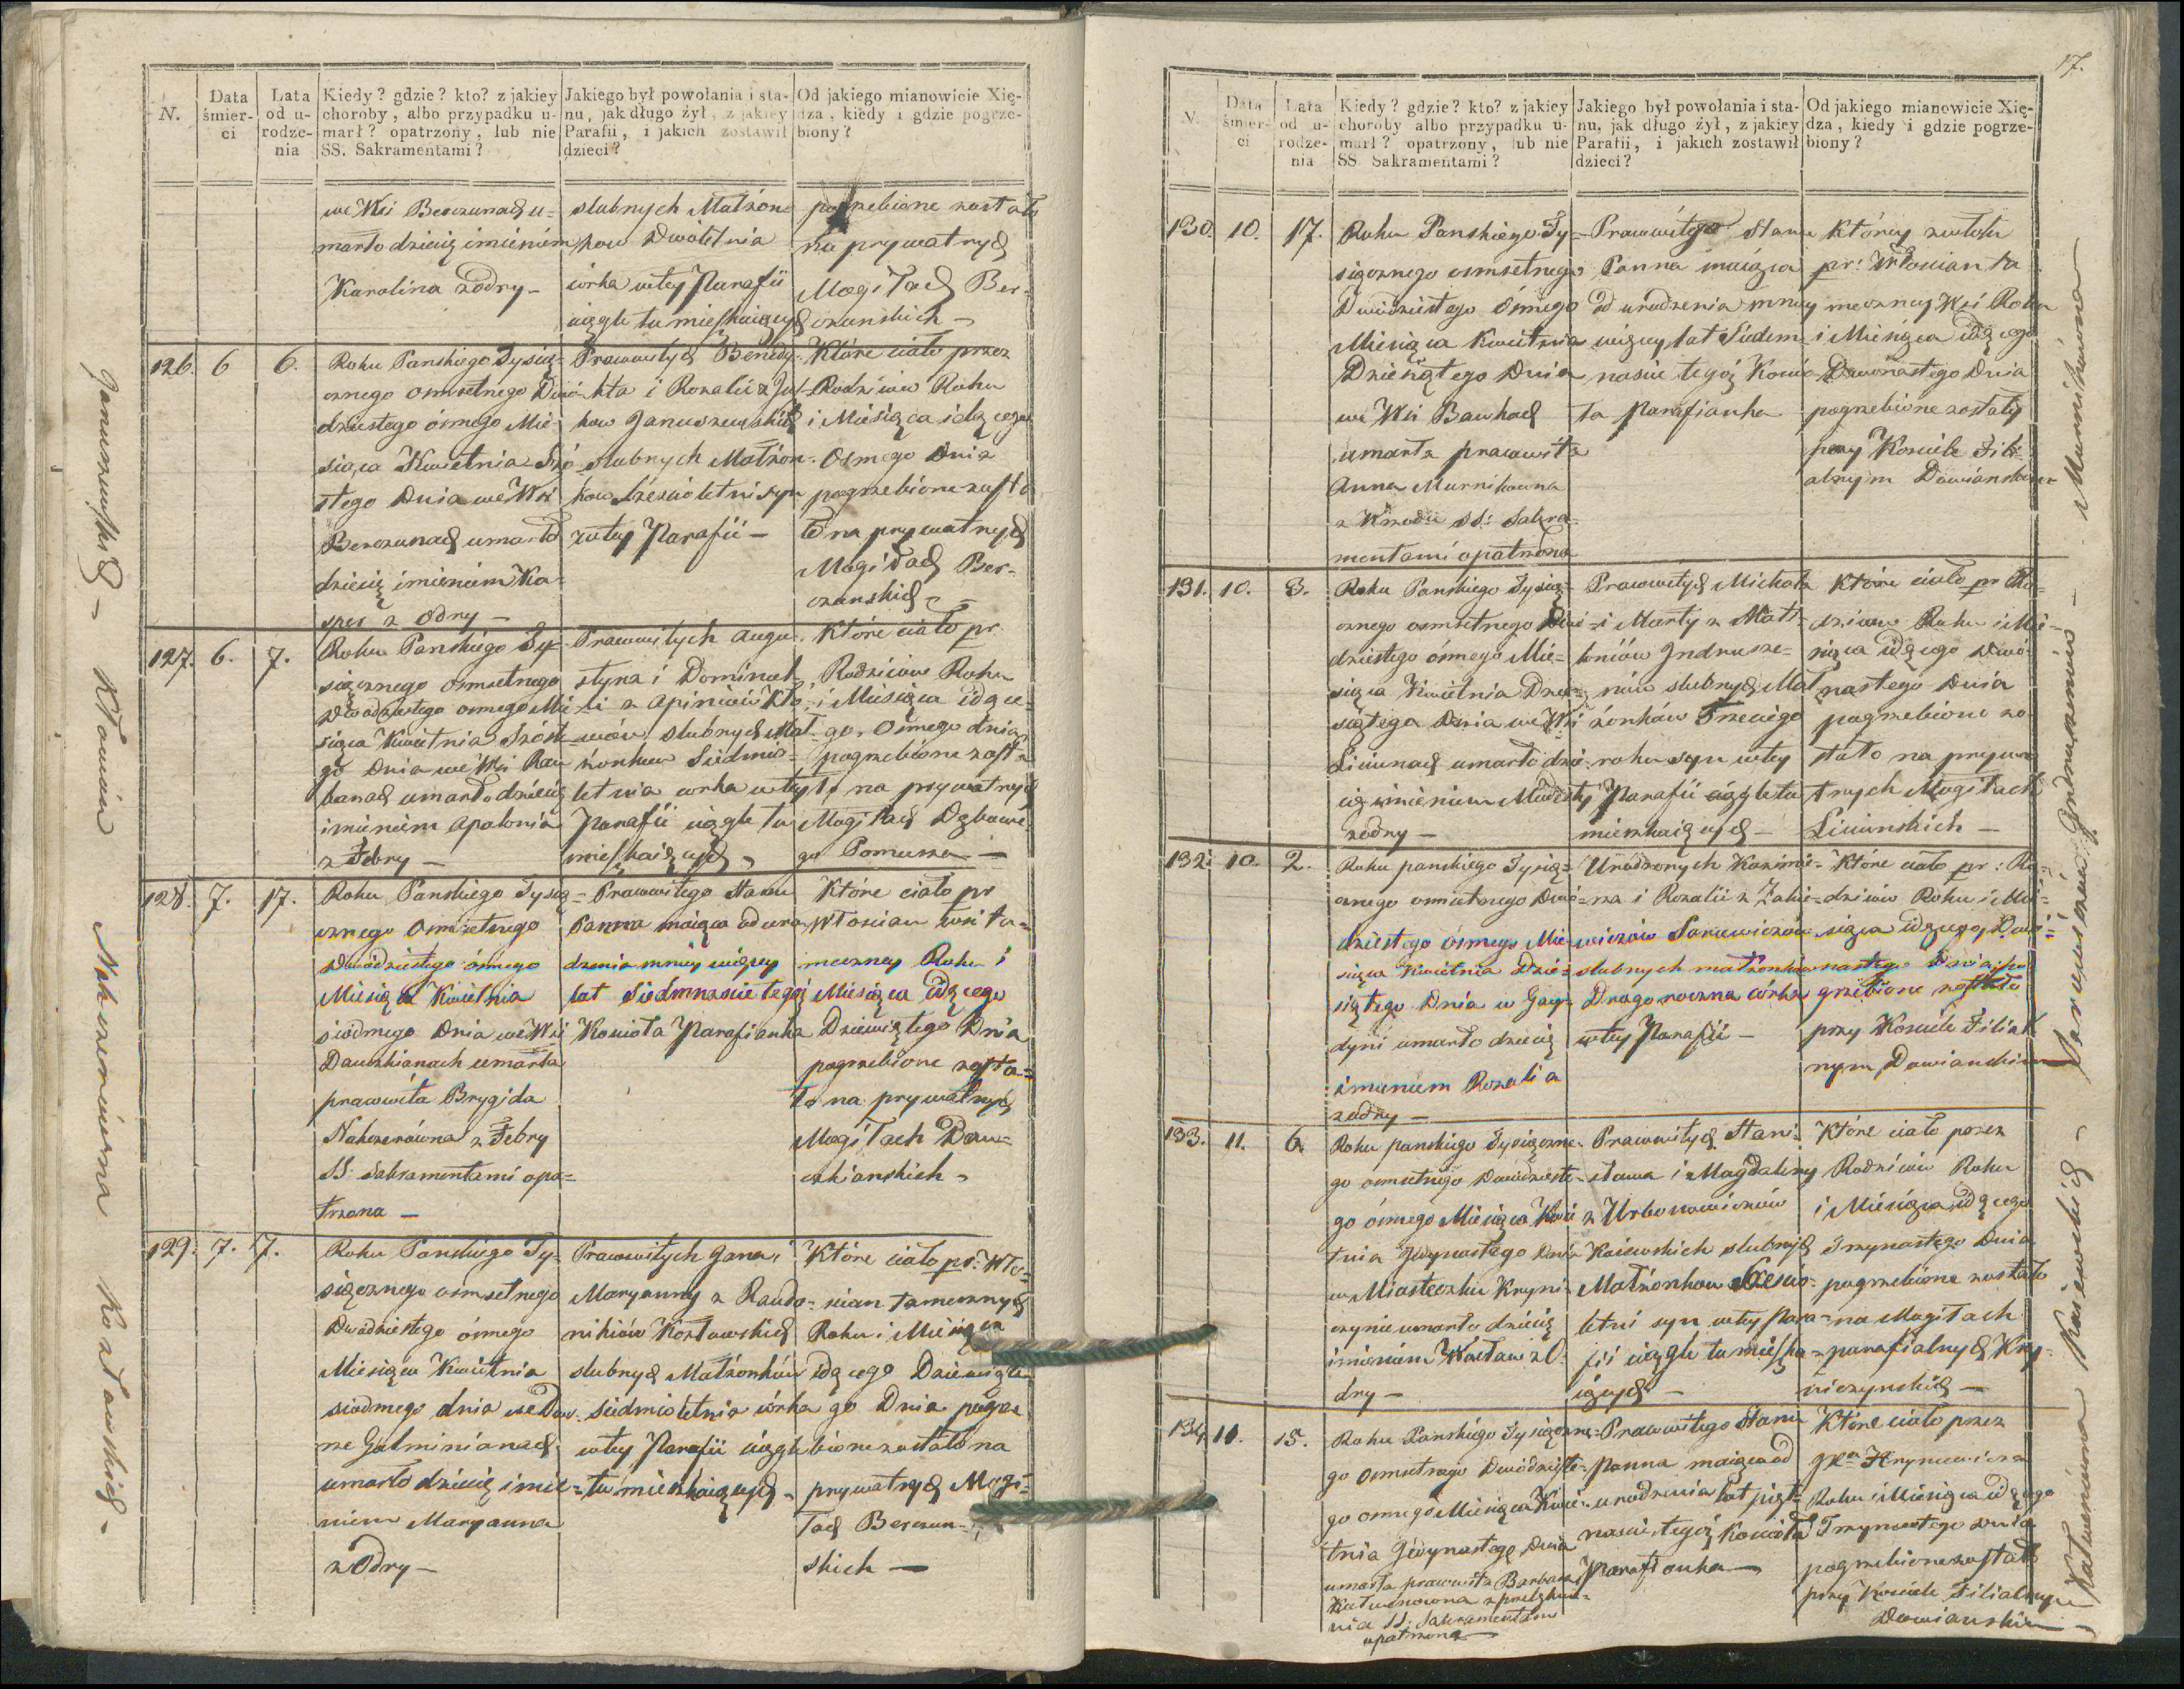 N.
Data śmierci
Lata od urodzenia
Kiedy? gdzie? kto? z jakiey
choroby, albo przypadku u-
marł? opatrzony, lub nie
SS. Sakramentami?
Jakiego był powołania i sta-
nu, jak długo żył, z jakiey
Parafii, i jakich zostawił
dzieci?
Od jakiego mianowicie Xię-
dza, kiedy i gdzie pogrze-
biony?
we Wsi Berczunach u=
marło dziecię imieniem
Karolina z odry –
slubnych Małżon-
kow Dwoletnia
corka wtey Parafii
ciągle tu mieszkaiących
pogrzebione zostało
na prywatnych
Mogiłach Ber-
czunskich –
126. 6 6.
Roku Panskiego Tysiąc-
cznego osmsetnego Dwó-
dziestego ósmego Mie-
siąca Kwietnia Szó-
stego Dnia we Wsi
Berczunach umarło
dziecię imieniem Ka-
sper z odry –
Prawowitych Benedy-
kta i Rozalii z
kow Januszewskich
slubnych Małżon-
kow Sześcioletni syn
wtey Parafii –
Które ciało przez
Rodziców Roku
i Miesiąca idącego
Osmego Dnia
pogrzebione zosta
ło na prywatnych
Mogiłach Ber-
czunskich –
127. 6. 7.
Roku Panskiego Ty-
siącznego osmsetnego
Dwodziestego osmego Mie
siąca Kwietnia Szóste
go Dnia we Wsi Rau
banach umarło dziecię
imieniem Apolonia
z Febry –
Prawowitych Augu-
styna i Dominel-
li z Apiniów Kło-
niów slubnych Mał-
żonkow Siedmio-
letnia corka wtey
Parafii ciągle tu
mieszkaiących –
Które ciało pr.
Rodziców Roku
i Miesiąca idące-
go Osmego dnia
pogrzebione zosta
ło na prywatnych
Mogiłach Dębowe-
go Pomusza –
128. 7. 17.
Roku Panskiego Tysią-
cznego Osmsetnego
Dwódziestego ósmego
Miesiąca Kwietnia
siodmego Dnia we Wsi
Dauszkianach umarła
prawowita Brygida
z Febry
SS. Sakramentami opa=
trzona –
Prawowitego Stanu
Panna maiąca od uro-
dzenia mniey więcey
lat Siedmnascie tegoż
Kościoła Parafianka
Które ciało pr
Włoscian wsi ta=
meczney Roku i
Miesiąca idącego
Dziewiątego Dnia
pogrzebione zosta=
ło na prywatnych
Mogiłach Dau-
szkianskich –
129. 7. 7.
Roku Panskiego Ty-
siącznego osmsetnego
Dwadziestego ósmego
Miesiąca Kwietnia
siodmego dnia we Dwo-
rze Gulminianach
umarło dziecię imie-
niem Maryanna
z Odry –
Prawowitych Jana i
Maryanny z Raudo-
nikiów Kozłowskich
slubnych Małżonków
siedmioletnia córka
wtey Parafii ciągle
tu mieszkaiących –
Które ciało pr: Wło-
scian tamecznych
Roku i Miesiąca
idącego Dziewiąte
go Dnia pogrze
bione zostało na
prywatnych Mogi=
łach Berczun-
skich –
Januszewskich –
Kłoniów
Kozłowskich –
17.
N.
Data śmierci
Lata od urodzenia
Kiedy? gdzie? kto? z jakiey
choroby albo przypadku u-
marł? opatrzony, lub nie
SS Sakramentami?
Jakiego był powołania i sta-
nu, jak długo żył, z jakiey
Parafii, i jakich zostawił
dzieci?
Od jakiego mianowicie Xię-
dza, kiedy i gdzie pogrze-
biony?
130. 10. 17.
Roku Panskiego Ty-
siącznego osmsetnego
Dwódziestego ósmego
Miesiąca Kwietnia
Dziesiątego Dnia
we Wsi Baukach
umarła prawowita
Anna Murnikowna
z Wrzodu SS: Sakra-
mentami opatrzona
Prawowitego Stanu
Panna maiąca
od urodzenia mniey
więcey lat Siedem
nascie tegoż Koscio
ła Parafianka
Którey zwłoki
pr: Włoscian ta
meczney Wsi Roku
i Miesiąca idącego
Dwonastego Dnia
pogrzebione zostały
przy Kosciele Fili-
alnym Dawianskim
131. 10. 3.
Roku Panskiego Tysią-
cznego osmsetnego Dwó-
dziestego ósmego Mie-
siąca Kwietnia Dzie-
siątego Dnia we Wsi
Liciunach umarło dzie-
cię imieniem Modesty
z odry –
Prawowitych Michała
i Marty z Mał-
koniów Jndrusze-
niów slubnych Mał
żonków Trzeciego
roku syn wtey
Parafii ciągle tu
mieszkaiących –
Które ciało pr Ro-
dziców Roku i Mie-
siąca idącego Dwó-
nastego Dnia
pogrzebione zo-
stało na prywa
tnych Mogiłach
Liciunskich –
132. 10. 2.
Roku panskiego Tysią-
cznego osmsetnego Dwó-
dziestego ósmego Mie-
siąca Kwietnia Dzie-
siątego Dnia w Gay-
dyni umarło dziecię
imieniem Rozalia
z odry –
Urodzonych Kazimie-
rza i Rozalii z Zakie-
wiczów
slubnych małżonków
Drugoroczna córka
wtey Parafii –
Które ciało pr: Ro-
dziców Roku i Mie-
siąca idącego Dwó-
nastego Dnia po
grzebione zostało
przy Kosciele Filial
nym Dawianskim
133. 11. 6.
Roku panskiego Tysiączne-
go osmsetnego Dwódzieste-
go ósmego Miesiąca Kwie
tnia Jedynastego Dnia
w Miasteczku Kryni-
czynie umarło dziecię
imieniem Wacław z O-
dry –
Prawowitych Stani-
sława i Magdaleny
z Urbonowiczów
Kaiewskich slubnych
Małżonkow Szescio-
letni syn wtey Para-
fii ciągle tu mieszka-
iących –
Które ciało przez
Rodziców Roku
i Miesiąca idącego
Trzynastego Dnia
pogrzebione zostało
na Mogiłach
parafialnych Kry-
niczynskich –
134. 11. 15.
Roku Panskiego Tysiączne-
go Osmsetnego Dwódzieste-
go osmego Miesiąca Kwie-
tnia Jedynastego Dnia
umarła prawowita Barbara
SS. Sakramentami
opatrzona
Prawowitego Stanu
panna maiąca od
urodzenia lat pięt-
nascie, tegoż Koscioła
Parafianka –
Które ciało przez
Hryncewicza
Roku i Miesiąca idącego
Trzynastego Dnia
pogrzebione zostało
przy Kosciele Filialnym
Dawianskim –
Murnikówna –
Kaiewskich –